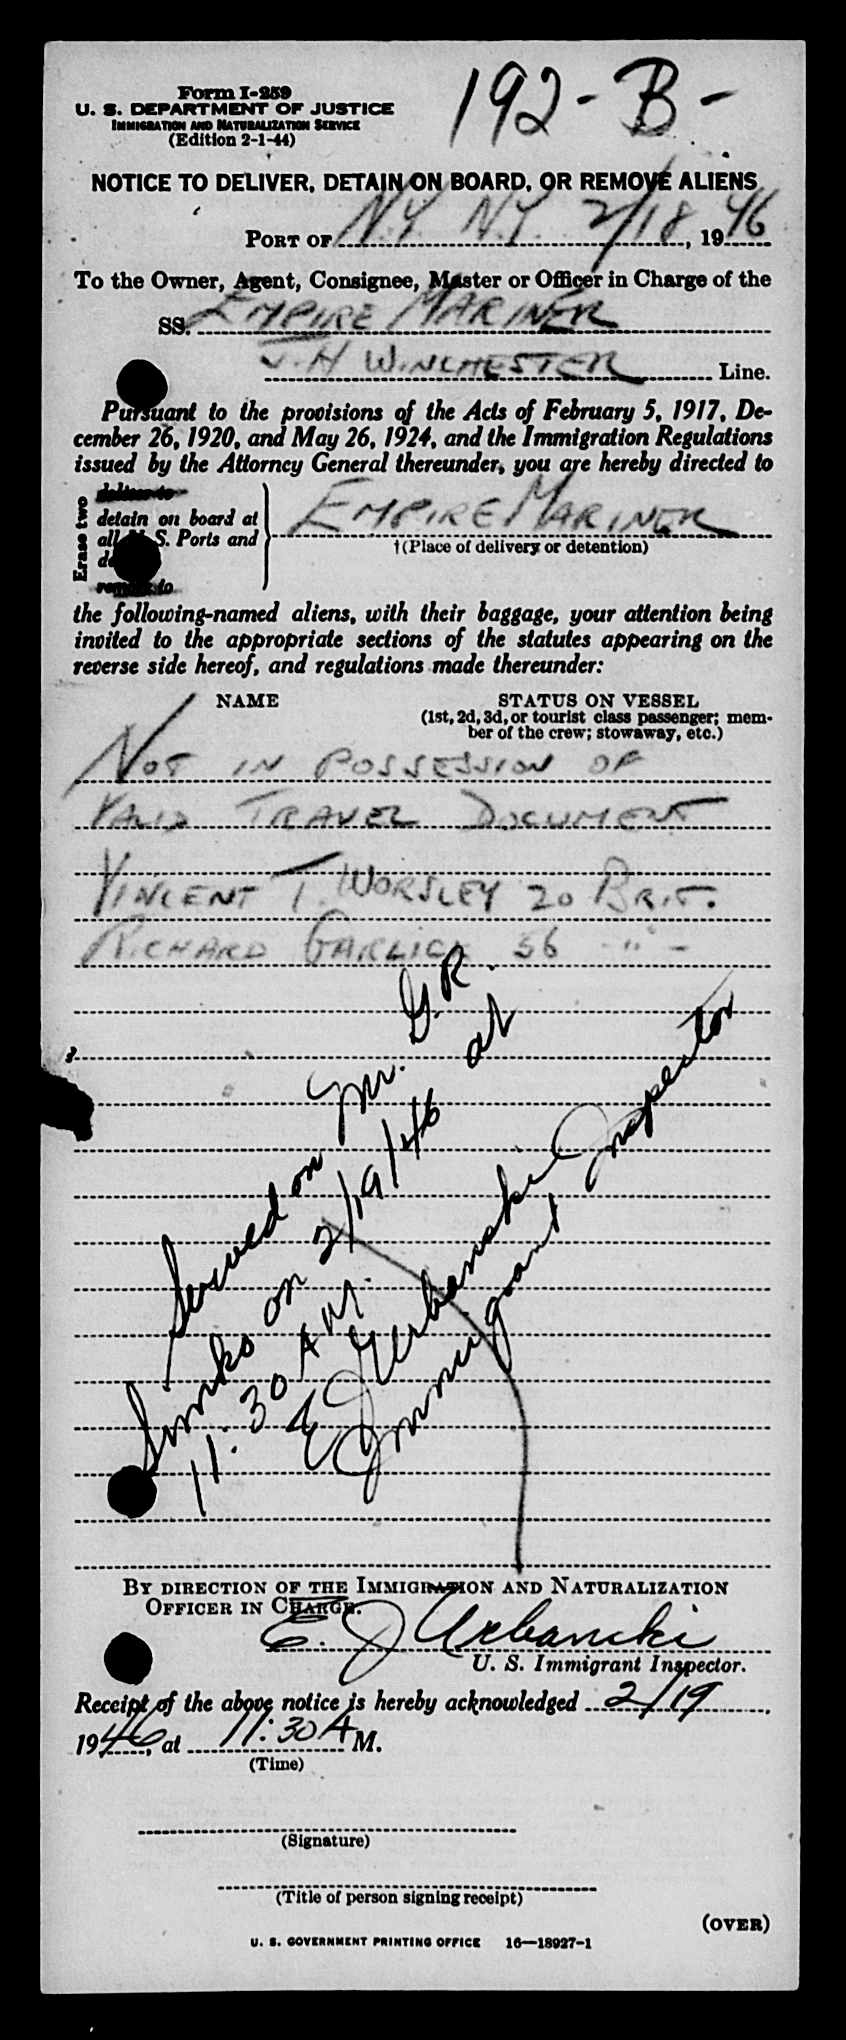 Form I-259
U. S. DEPARTMENT OF JUSTICE
IMMIGRATION AND NATURALIZATION SERVICE
(Edition 2-1-44)
192-B-
NOTICE TO DELIVER, DETAIN ON BOARD, OR REMOVE ALIENS
PORT OF N.Y. N.Y. 2/18, 1946
To the Owner, Agent, Consignee, Master or Officer in Charge of the
SS. EMPIRE MARINER
J. H WINCHESTER Line.
Pursuant to the provisions of the Acts of February 5, 1917, De-
cember 26, 1920, and May 26, 1924, and the Immigration Regulations
issued by the Attorney General thereunder, you are hereby directed to
Erase two
deliver to
detain on board at
all U. S. Ports and
remove to
EMPIRE MARINER
†(Place of delivery or detention)
the following-named aliens, with their baggage, your attention being
invited to the appropriate sections of the statutes appearing on the
reverse side hereof, and regulations made thereunder:
NAME STATUS ON VESSEL
(1st, 2d, 3d, or tourist class passenger; mem-
ber of the crew; stowaway, etc.)
NOT IN POSSESSION OF
VALID TRAVEL DOCUMENT
VINCENT T. WORSLEY 20 BRIT.
RICHARD GARLICK 56 - " -
Served on Mr. G.R.
Simko on 2/19/46 at
11:30 AM.
E J Urbanski
Immigrant Inspector
BY DIRECTION OF THE IMMIGRATION AND NATURALIZATION
OFFICER IN CHARGE.
E. J Urbanski
U. S. Immigrant Inspector.
Receipt of the above notice is hereby acknowledged 2/19,
1946, at 11:30 A M.
(Time)
(Signature)
(Title of person signing receipt)
(OVER)
U. S. GOVERNMENT PRINTING OFFICE 16—18927-1